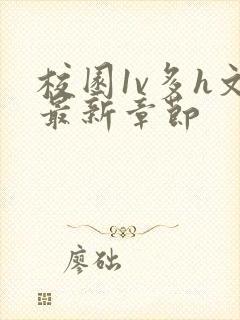 校园1v多h文
最新章节
廖础